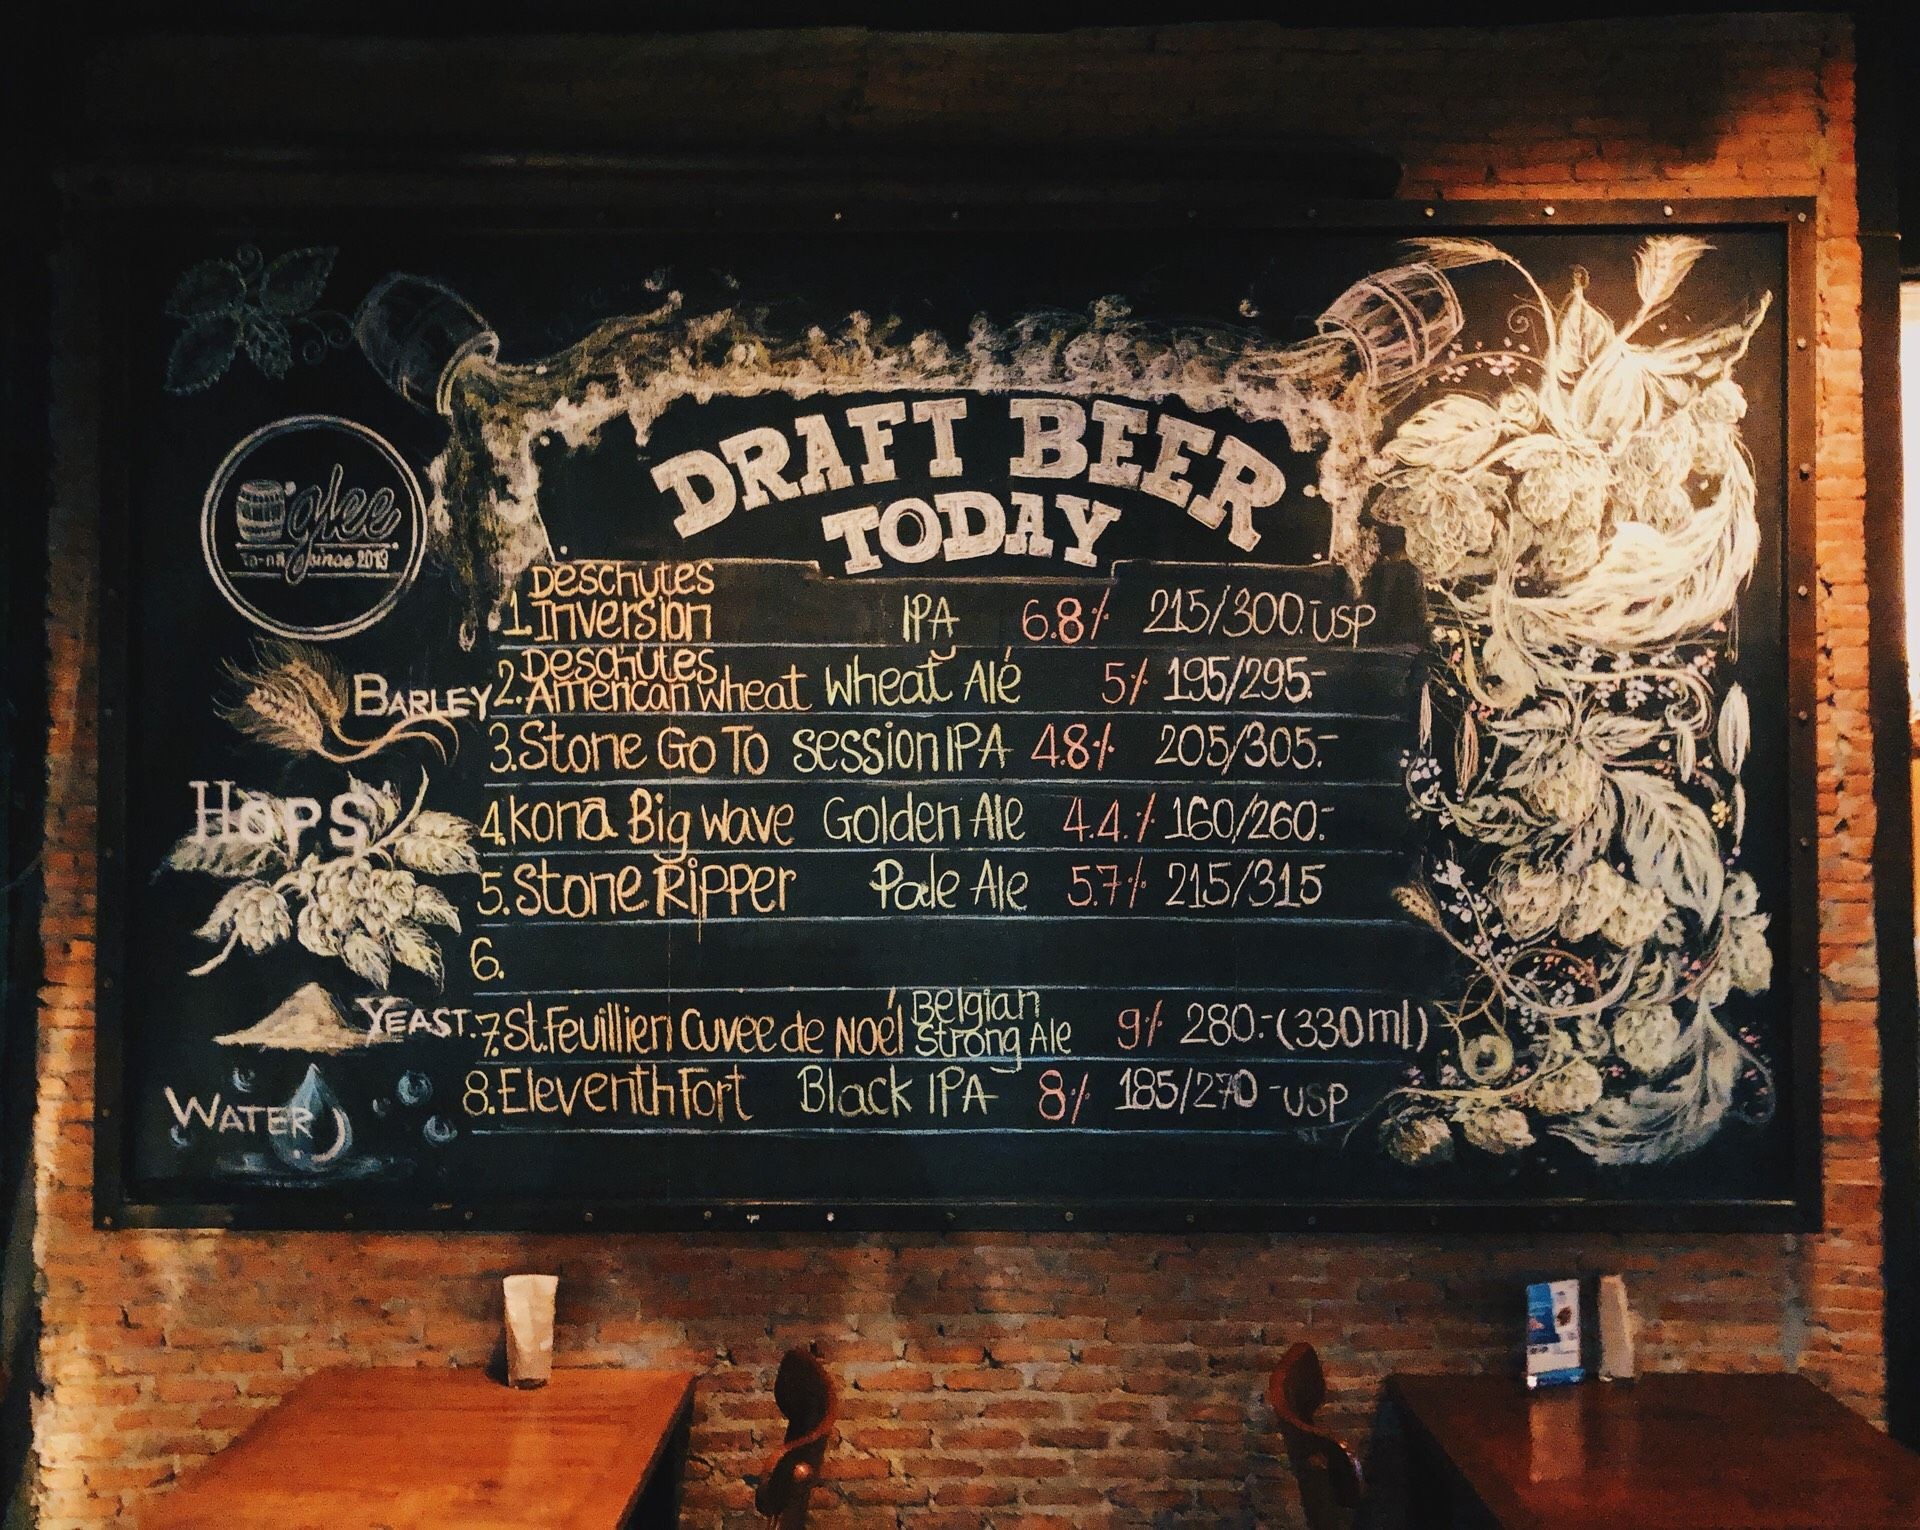 DRAFT BEER
TODAY
glee
Since 2013
1. Deschutes Inversion IPA 6.8% 215/300.- USP
BARLEY
2. Deschutes American Wheat Wheat Ale 5% 195/295.-
3. Stone Go To Session IPA 4.8% 205/305.-
HOPS
4. Kona Big Wave Golden Ale 4.4.% 160/260.-
5. Stone Ripper Pale Ale 5.7% 215/315
6.
YEAST
7. St. Feuillien Cuvee de Noél Belgian Strong Ale 9% 280.- (330ml)
WATER
8. Eleventh Fort Black IPA 8% 185/270 - USP